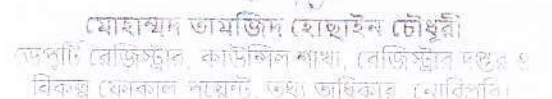 মোহাম্মদ তামজিদ হোছাইন চৌধুরী
ডেপুটি রেজিস্ট্রার, কাউন্সিল শাখা, রেজিস্ট্রার দপ্তর ও
বিকল্প ফোকাল পয়েন্ট, তথ্য অধিকার, নোবিপ্রবি।